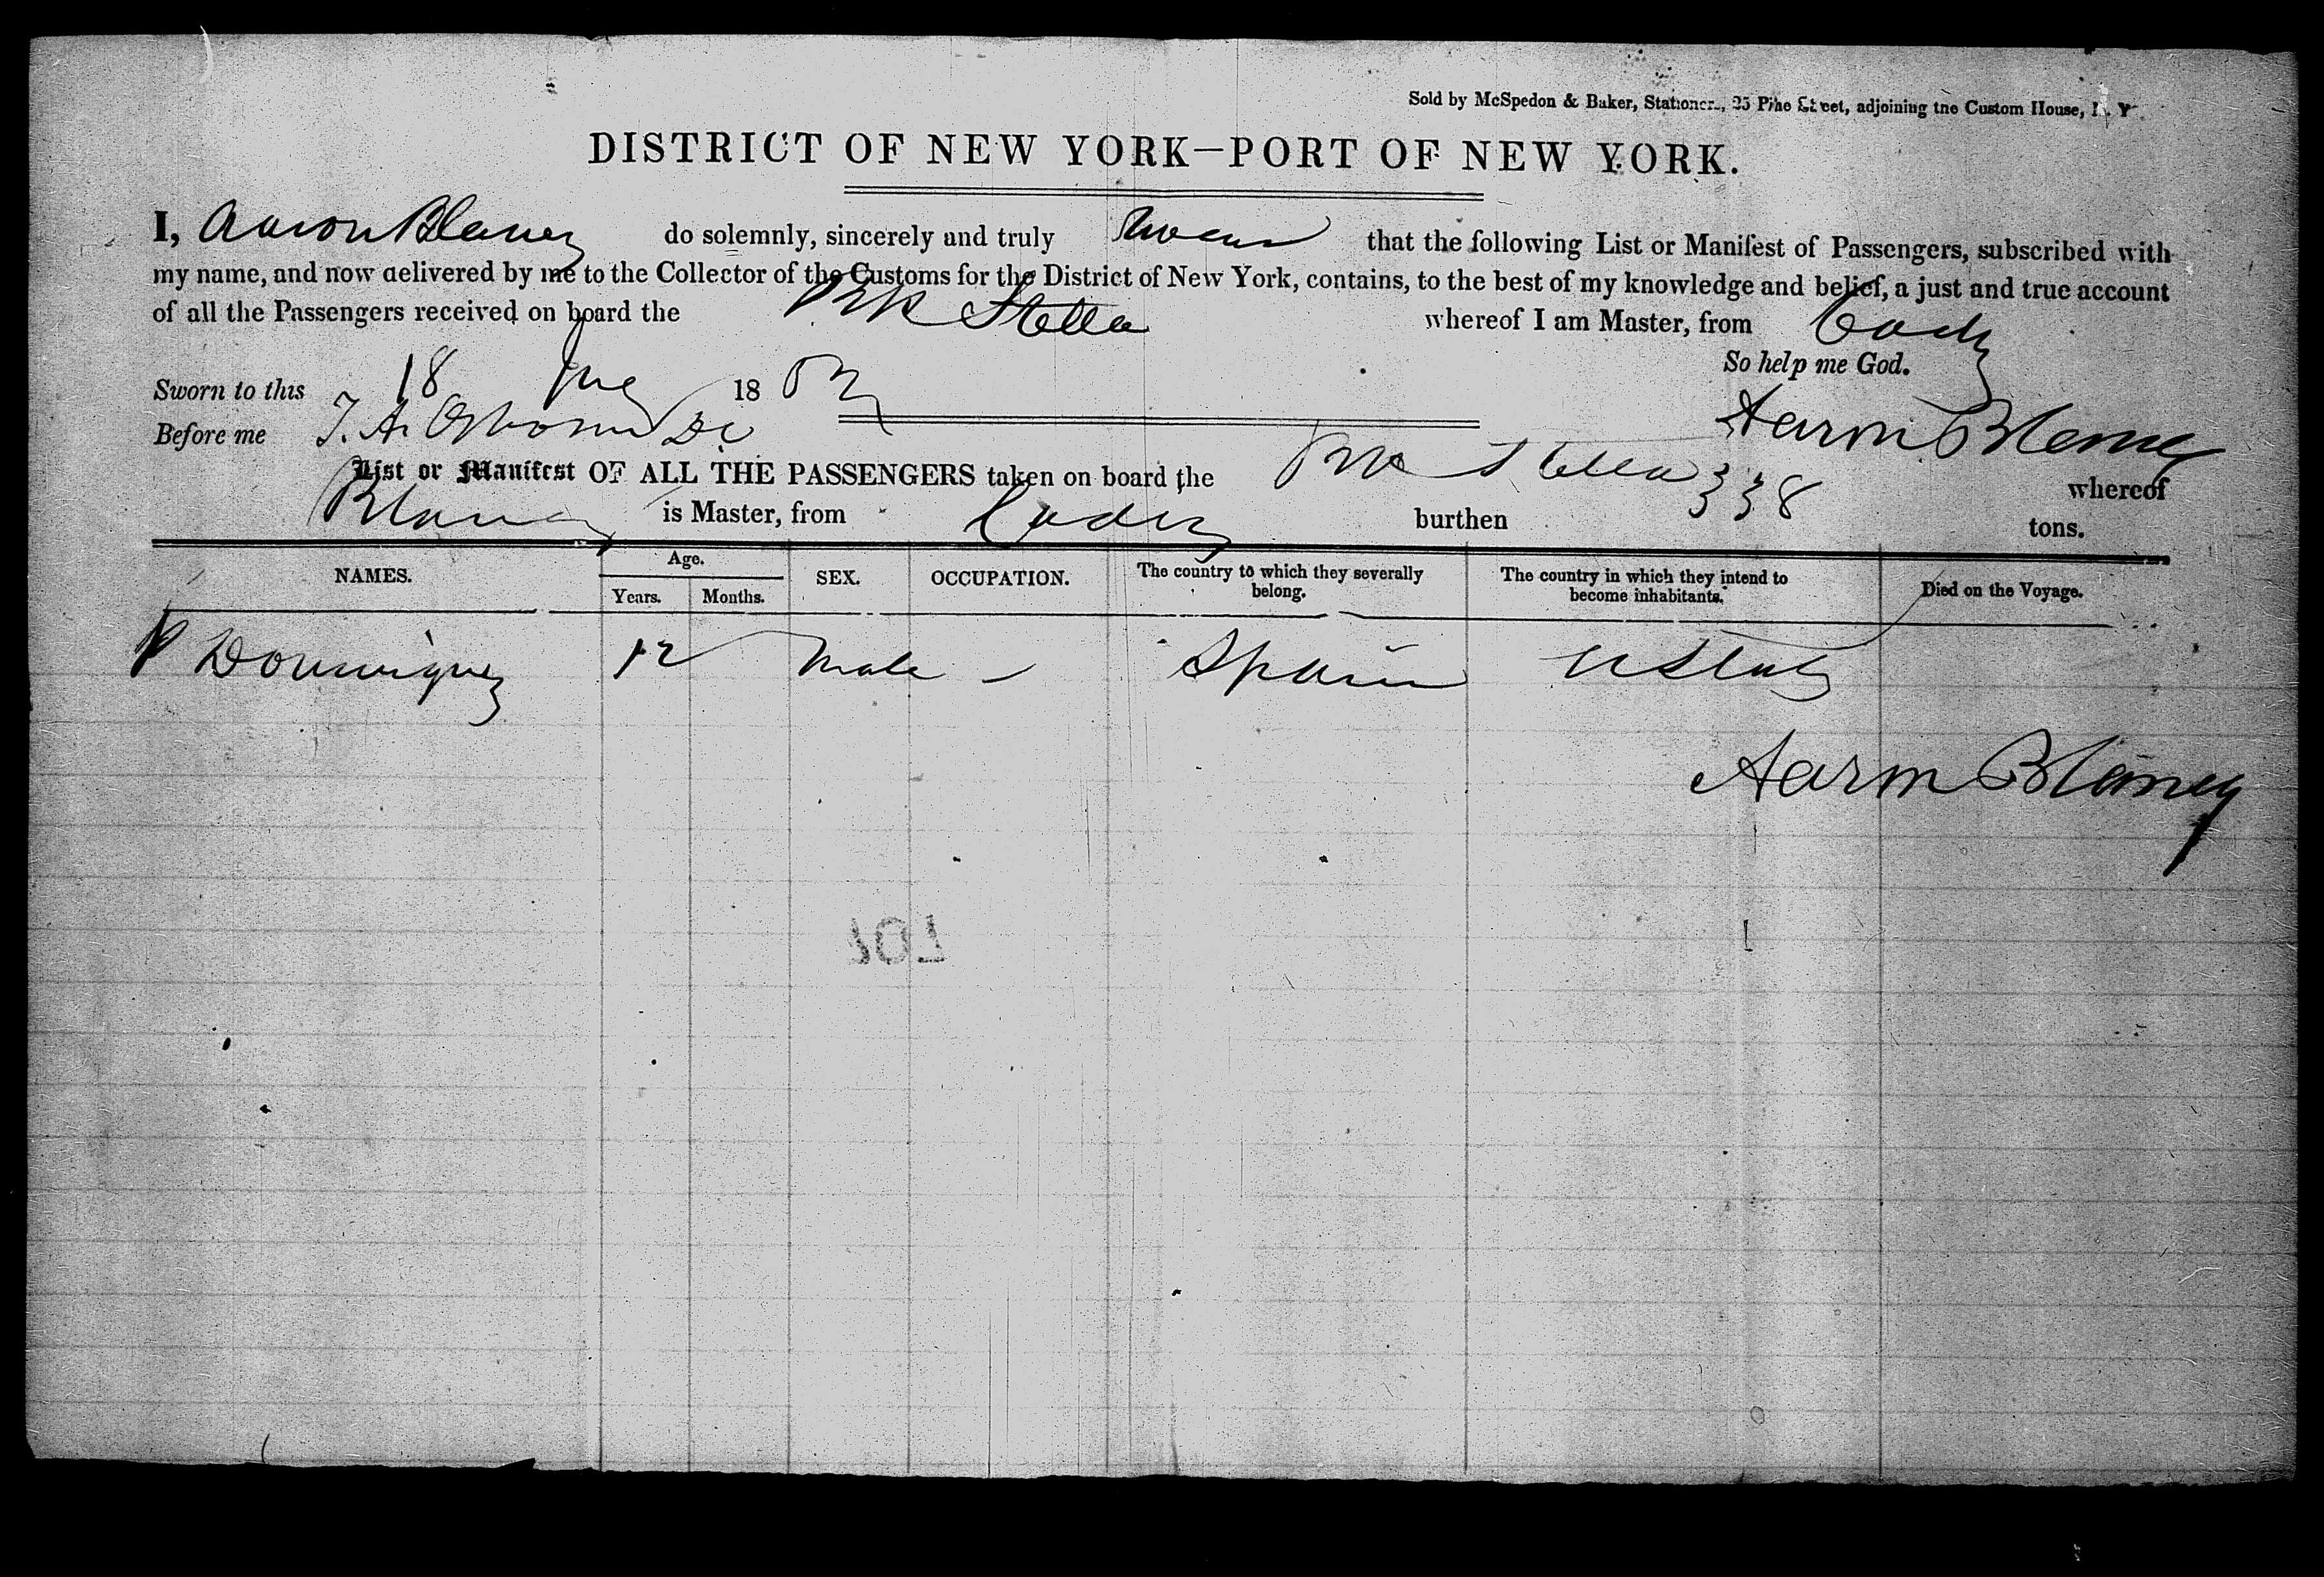 Sold by McSpedon & Baker, Stationers, 25 Pine Street, adjoining the Custom House, N. Y.
DISTRICT OF NEW YORK—PORT OF NEW YORK.
I, Aaron Blaney do solemnly, sincerely and truly swear that the following List or Manifest of Passengers, subscribed with
my name, and now delivered by me to the Collector of the Customs for the District of New York, contains, to the best of my knowledge and belief, a just and true account
of all the Passengers received on board the Brk Stella whereof I am Master, from Cadiz
So help me God.
Sworn to this 18 18
Before me Aaron Blaney
List or Manifest OF ALL THE PASSENGERS taken on board the Brk Stella whereof
Blaney is Master, from Cadiz burthen 338 tons.
NAMES. Age. Years. Months. SEX. OCCUPATION. The country to which they severally belong. The country in which they intend to become inhabitants. Died on the Voyage.
P Dominguez 12 Male – Spain U States
Aaron Blaney
101